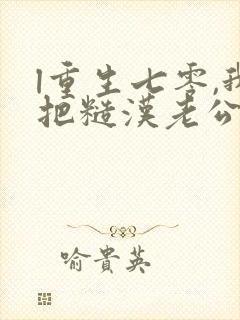 l重生七零,我
把糙漢老公
喻貴英